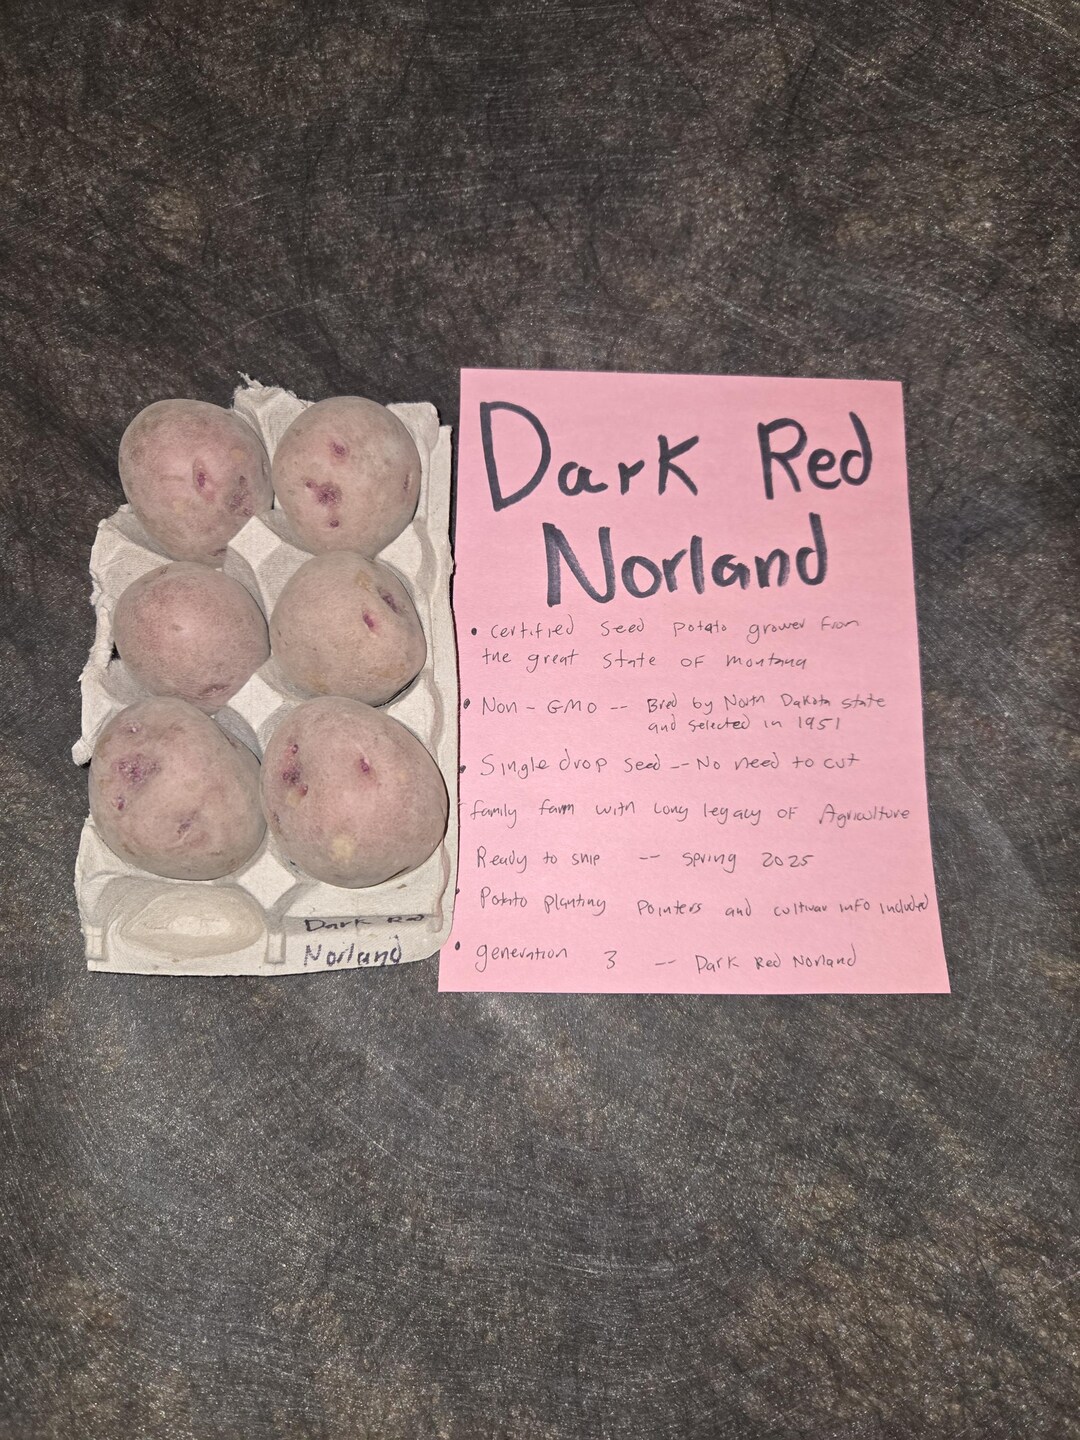 Dark Red
Norland
• certified seed potato grower from
the great state of montana
• Non - GMO -- Bred by North Dakota state
and selected in 1951
• Single drop seed -- No need to cut
family farm with long legacy of Agriculture
Ready to ship -- spring 2025
• Potato planting pointers and cultivar info included
• generation 3 -- Dark Red Norland
Dark Red
Norland